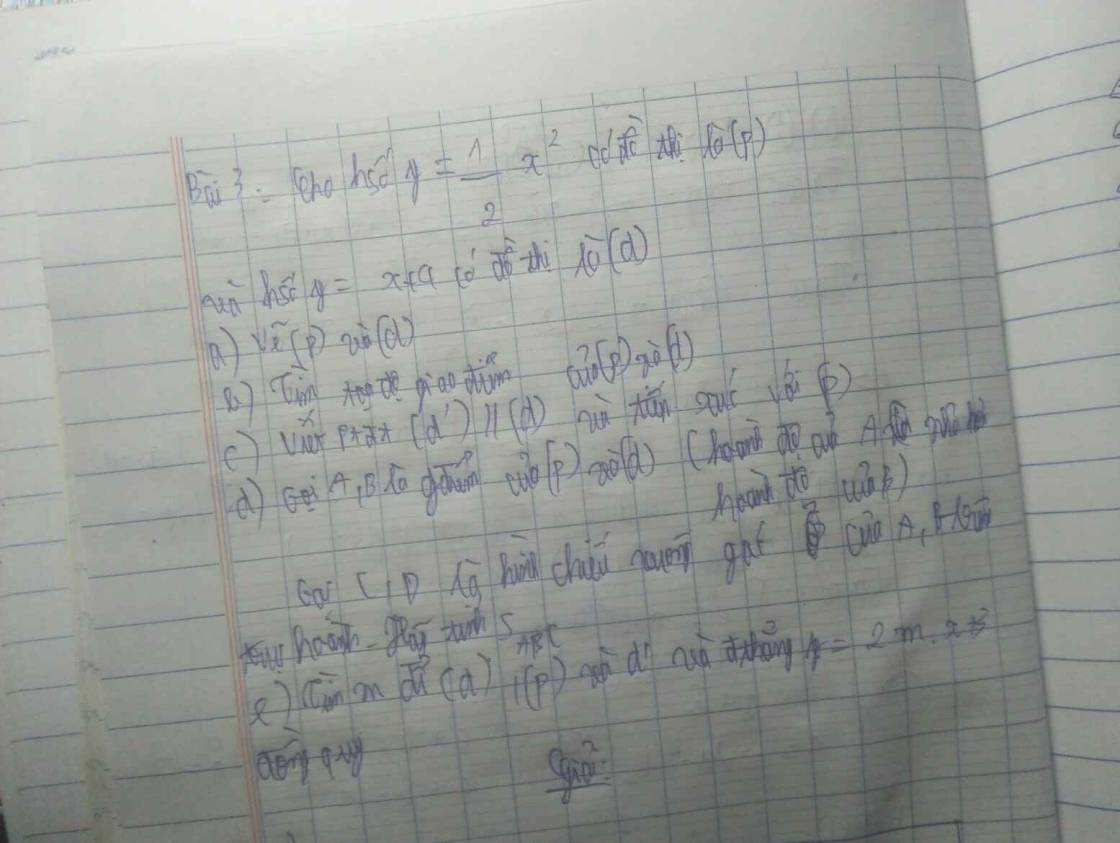 Bài 3: Cho hsố y = 1/2 x² có đồ thị là (P)
và hsố y = x+4 có đồ thị là (d)
a) Vẽ (P) và (d)
b) Tìm toạ độ giao điểm của (P) và (d)
c) Viết ptđt (d') // (d) và tiếp xúc với (P)
d) Gọi A, B là gđiểm của (P) và (d) (hoành độ của A
hoành độ của B)
Gọi C, D là hình chiếu vuông góc của A, B trên
trục hoành - Hãy tính S ABC
e) Tìm m để (d), (P) và d' và đthẳng y = 2m.x+
đồng quy
Giải: